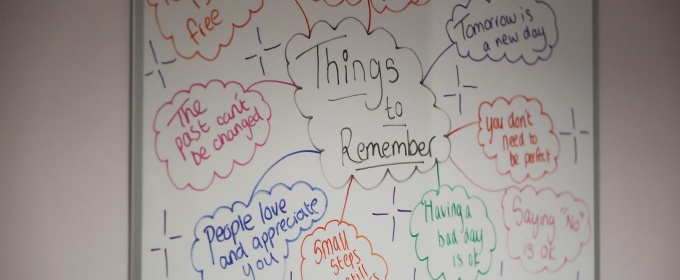 free
Tomorrow is
a new day
Things
to
Remember
The
past can't
be changed
you don't
need to
be perfect
People love
and appreciate
you
Having a
bad day
is ok
Saying "No"
is ok
Small
steps